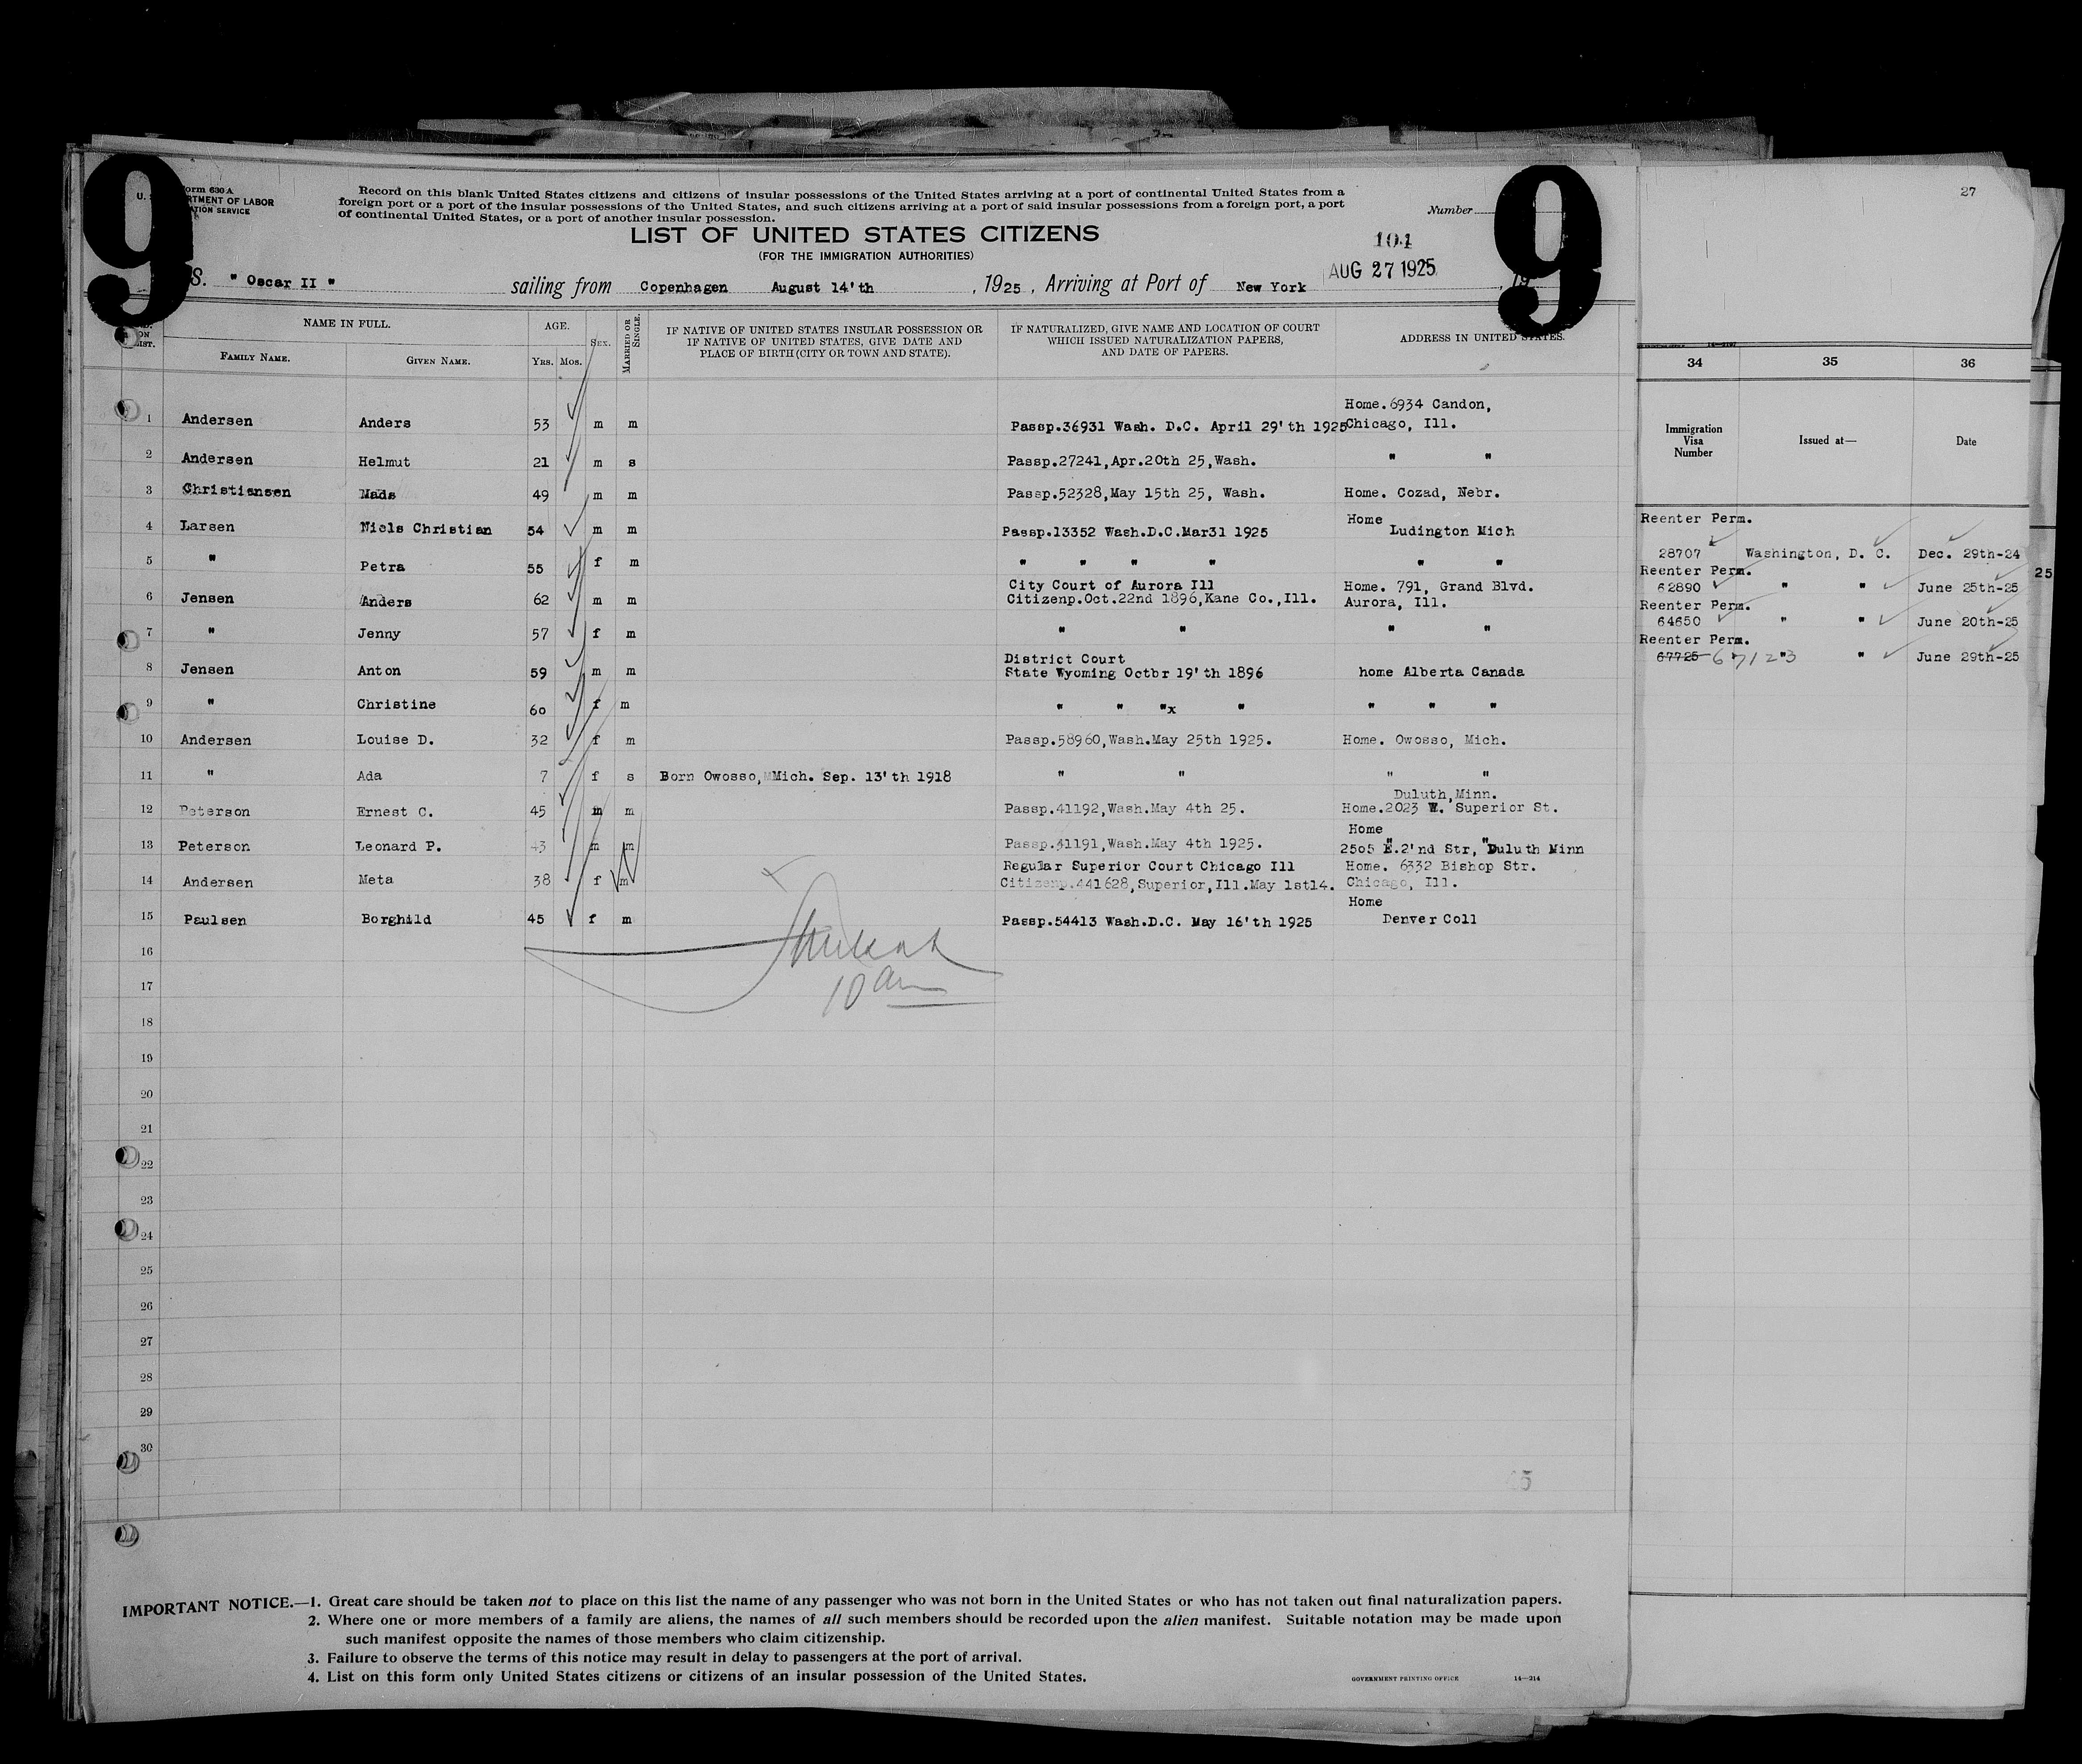 27
9
9
Form 630 A
U. S. DEPARTMENT OF LABOR
IMMIGRATION SERVICE
Record on this blank United States citizens and citizens of insular possessions of the United States arriving at a port of continental United States from a
foreign port or a port of the insular possessions of the United States, and such citizens arriving at a port of said insular possessions from a foreign port, a port
of continental United States, or a port of another insular possession.
Number
LIST OF UNITED STATES CITIZENS
(FOR THE IMMIGRATION AUTHORITIES)
104
S. " Oscar II " sailing from Copenhagen August 14'th , 1925 , Arriving at Port of New York AUG 27 1925 , 19
ON LIST. NAME IN FULL. FAMILY NAME. GIVEN NAME. AGE. YRS. MOS. SEX. MARRIED OR SINGLE. IF NATIVE OF UNITED STATES INSULAR POSSESSION OR IF NATIVE OF UNITED STATES, GIVE DATE AND PLACE OF BIRTH (CITY OR TOWN AND STATE). IF NATURALIZED, GIVE NAME AND LOCATION OF COURT WHICH ISSUED NATURALIZATION PAPERS, AND DATE OF PAPERS. ADDRESS IN UNITED STATES.
Home. 6934 Candon,
1 Andersen Anders 53 m m Passp.36931 Wash. D.C. April 29'th 1925 Chicago, Ill.
2 Andersen Helmut 21 m s Passp.27241,Apr.20th 25,Wash. " "
3 Christiansen Mads 49 m m Passp.52328,May 15th 25, Wash. Home. Cozad, Nebr.
Home
4 Larsen Niels Christian 54 m m Passp.13352 Wash.D.C.Mar31 1925 Ludington Mich
5 " Petra 55 f m " " " " " "
City Court of Aurora Ill Home. 791, Grand Blvd.
6 Jensen Anders 62 m m Citizenp.Oct.22nd 1896,Kane Co.,Ill. Aurora, Ill.
7 " Jenny 57 f m " " " "
District Court
8 Jensen Anton 59 m m State Wyoming Octbr 19'th 1896 home Alberta Canada
9 " Christine 60 f m " " "x " " " "
10 Andersen Louise D. 32 f m Passp.58960,Wash.May 25th 1925. Home. Owosso, Mich.
11 " Ada 7 f s Born Owosso, Mich. Sep. 13'th 1918 " " " "
Duluth,Minn.
12 Peterson Ernest C. 45 m m Passp.41192,Wash.May 4th 25. Home.2023 W. Superior St.
Home
13 Peterson Leonard P. 43 m m Passp.41191,Wash.May 4th 1925. 2505 E.2'nd Str, "Duluth Minn
Regular Superior Court Chicago Ill Home. 6332 Bishop Str.
14 Andersen Meta 38 f m Citizenp.441628,Superior,Ill.May 1st14. Chicago, Ill.
Home
15 Paulsen Borghild 45 f m Passp.54413 Wash.D.C. May 16'th 1925 Denver Coll
16
10 am
17
18
19
20
21
22
23
24
25
26
27
28
29
30
IMPORTANT NOTICE.—1. Great care should be taken not to place on this list the name of any passenger who was not born in the United States or who has not taken out final naturalization papers.
2. Where one or more members of a family are aliens, the names of all such members should be recorded upon the alien manifest. Suitable notation may be made upon
such manifest opposite the names of those members who claim citizenship.
3. Failure to observe the terms of this notice may result in delay to passengers at the port of arrival.
4. List on this form only United States citizens or citizens of an insular possession of the United States.
GOVERNMENT PRINTING OFFICE 14—314
34 35 36
Immigration Visa Number Issued at— Date
Reenter Perm.
28707 Washington, D. C. Dec. 29th-24
Reenter Perm.
62890 " " June 25th-25
Reenter Perm.
64650 " " June 20th-25
Reenter Perm.
67725 67123 " " June 29th-25
25